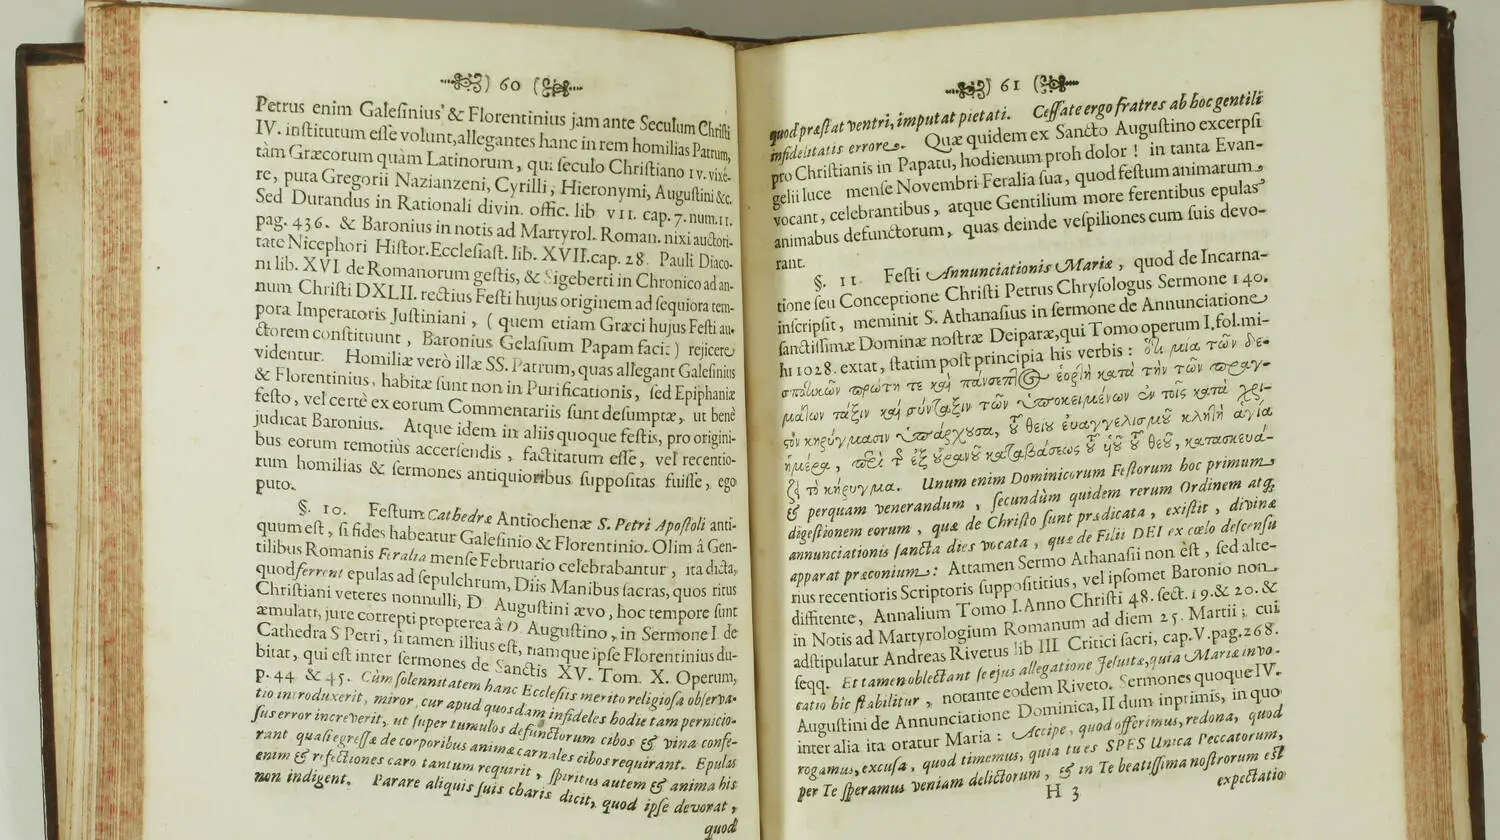 60
Petrus enim Galeſinius & Florentinius jam ante Seculum Chriſti
IV. inſtitutum eſſe volunt, allegantes hanc in rem homilias Patrum,
tàm Græcorum quàm Latinorum, qui ſeculo Chriſtiano IV. vixê-
re, puta Gregorii Nazianzeni, Cyrilli, Hieronymi, Auguſtini &c.
Sed Durandus in Rationali divin. offic. lib VII. cap. 7. num. 11.
pag. 436. & Baronius in notis ad Martyrol. Roman. nixi auctori-
tate Nicephori Hiſtor. Eccleſiaſt. lib. XVII. cap. 28. Pauli Diaco-
ni lib. XVI de Romanorum geſtis, & Sigeberti in Chronico ad an-
num Chriſti DXLII. rectius Feſti hujus originem ad ſequiora tem-
pora Imperatoris Juſtiniani, (quem etiam Græci hujus Feſti au-
ctorem conſtituunt, Baronius Gelaſium Papam facit) rejicere
videntur. Homiliæ verò illæ SS. Patrum, quas allegant Galeſinius
& Florentinius, habitæ ſunt non in Purificationis, ſed Epiphaniæ
feſto, vel certè ex eorum Commentariis ſunt deſumptæ, ut benè
judicat Baronius. Atque idem in aliis quoque feſtis, pro origini-
bus eorum remotiùs accerſendis, factitatum eſſe, vel recentio-
rum homilias & ſermones antiquioribus ſuppoſitas fuiſſe, ego
puto.
§. 10. Feſtum Cathedræ Antiochenæ S. Petri Apoſtoli anti-
quum eſt, ſi fides habeatur Galeſinio & Florentinio. Olim â Gen-
tilibus Romanis Feralia menſe Februario celebrabantur, ita dicta,
quod ferrent epulas ad ſepulchrum, Diis Manibus ſacras, quos ritus
Chriſtiani veteres nonnulli, D Auguſtini ævo, hoc tempore ſunt
æmulati, jure correpti propterea â D. Auguſtino, in Sermone I. de
Cathedra S Petri, ſi tamen illius eſt, namque ipſe Florentinius du-
bitat, qui eſt inter ſermones de Sanctis XV. Tom. X. Operum,
p. 44 & 45. Cùm ſolennitatem hanc Eccleſiis merito religioſa obſerva-
tio introduxerit, miror cur apud quosdam infideles hodie tam pernicio-
ſus error increverit, ut ſuper tumulos defunctorum cibos & vina confe-
rant quaſi egreſſæ de corporibus animæ carnales cibos requirant. Epulas
enim & refectiones caro tantum requirit, ſpiritus autem & anima his
non indigent. Parare aliquis ſuis charis dicit, quod ipſe devorat,
quod
61
quod præſtat ventri, imputat pietati. Ceſſate ergo fratres ab hoc gentili
infidelitatis errore. Quæ quidem ex Sancto Auguſtino excerpſi
pro Chriſtianis in Papatu, hodienum proh dolor! in tanta Evan-
gelii luce menſe Novembri Feralia ſua, quod feſtum animarum
vocant, celebrantibus, atque Gentilium more ferentibus epulas
animabus defunctorum, quas deinde veſpiliones cum ſuis devo-
rant.
§. 11. Feſti Annunciationis Mariæ, quod de Incarna-
tione ſeu Conceptione Chriſti Petrus Chryſologus Sermone 140.
inſcripſit, meminit S. Athanaſius in ſermone de Annunciatione
ſanctiſſimæ Dominæ noſtræ Deiparæ, qui Tomo operum I. fol. mi-
hi 1028. extat, ſtatim poſt principia his verbis: ὅτι μια τῶν δε-
σποτικῶν πρώτη τε καὶ πάνσεπτος ἑορτὴ κατὰ τὴν τῶν πραγ-
μάτων τάξιν καὶ σύνταξιν τῶν ὑποκειμένων ἐν τοῖς κατὰ χρι-
ςὸν κηρύγμασιν ὑπάρχουσα, ἡ θείου ἐυαγγελισμοῦ κλητὴ ἁγία
ἡμέρα, περὶ τῆς ἐξ οὐρανοῦ καταβάσεως τοῦ ὑοῦ τοῦ θεοῦ, κατασκευά-
ζει τὸ κήρυγμα. Unum enim Dominicorum Feſtorum hoc primum
& perquam venerandum, ſecundùm quidem rerum Ordinem atq;
digeſtionem eorum, quæ de Chriſto ſunt prædicata, exiſtit, divinæ
annunciationis ſancta dies vocata, quæ de Filii DEI ex cœlo deſcenſu
apparat præconium: Attamen Sermo Athanaſii non eſt, ſed alte-
rius recentioris Scriptoris ſuppoſititius, vel ipſomet Baronio non
diffitente, Annalium Tomo I. Anno Chriſti 48. ſect. 19. & 20. &
in Notis ad Martyrologium Romanum ad diem 25. Martii; cui
adſtipulatur Andreas Rivetus lib III Critici ſacri, cap. V. pag. 268.
ſeqq. Et tamen oblectant ſe ejus allegatione Jeſuitæ, quia Mariæ invo-
catio hic ſtabilitur, notante eodem Riveto. Sermones quoque IV.
Auguſtini de Annunciatione Dominica, II dum inprimis, in quo
inter alia ita oratur Maria: Accipe, quod offerimus, redona, quod
rogamus, excuſa, quod timemus, quia tu es SPES Unica Peccatorum,
per Te ſperamus veniam delictorum, & in Te beatiſſima noſtrorum eſt
H 3
expectatio